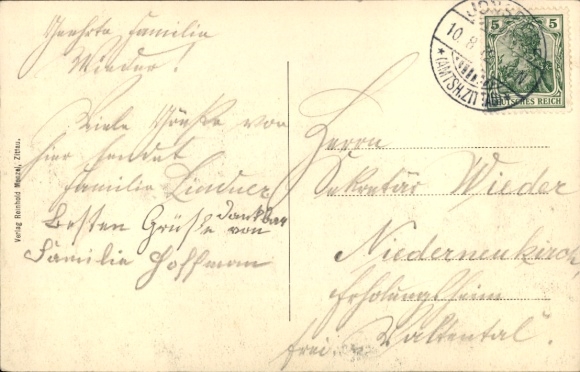 Geehrte Familie
Wieder!
Viele Grüße von
hier sendet
Familie Lindner
Besten Grüße dankbar
von
Familie Hoffman
Verlag Reinhold Menzel, Zittau.
JONSDORF
10.8
* (AMTSH. ZITTAU) *
5 5
DEUTSCHES REICH
Herrn
Sekretär Wieder
Niederneukirch
Erholungsheim
frei. Valtental".